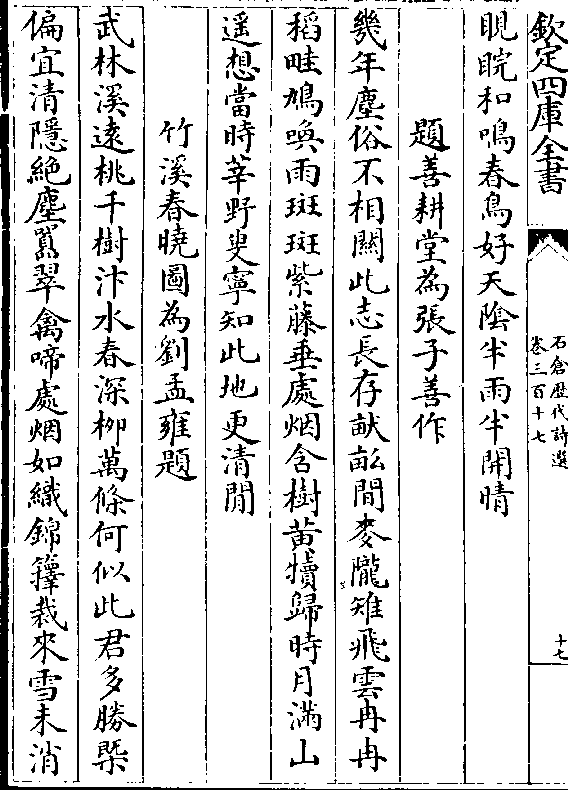 欽定四庫全書
石倉歴代詩選
卷三百十七
十七
睍睆和鳴春鳥好天隂半雨半開晴
題善耕堂為張子善作
幾年塵俗不相關此志長存畎畝間麥隴雉飛雲冉冉
稻畦鳩喚雨斑斑紫藤垂處烟含樹黄犢歸時月滿山
遥想當時莘野叟寧知此地更清閒
竹溪春曉圖為劉孟雍題
武林溪遠桃千樹汴水春深栁萬條何似此君多勝槩
偏宜清隱絶塵囂翠禽啼處烟如織錦籜裁來雪未消